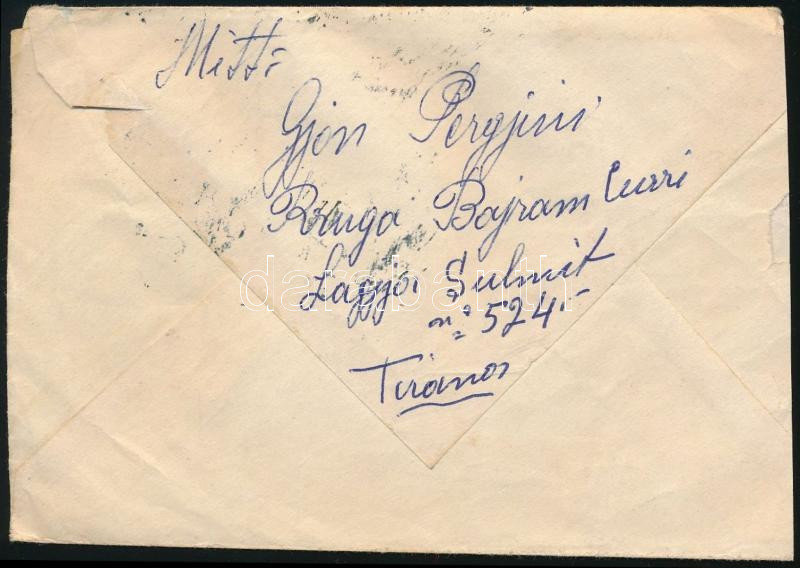 Mitt:
Gjon Pergjini
Rruga Bajram Curri
Lagjja Sulmit
nº 524.-
Tirana
darabanth